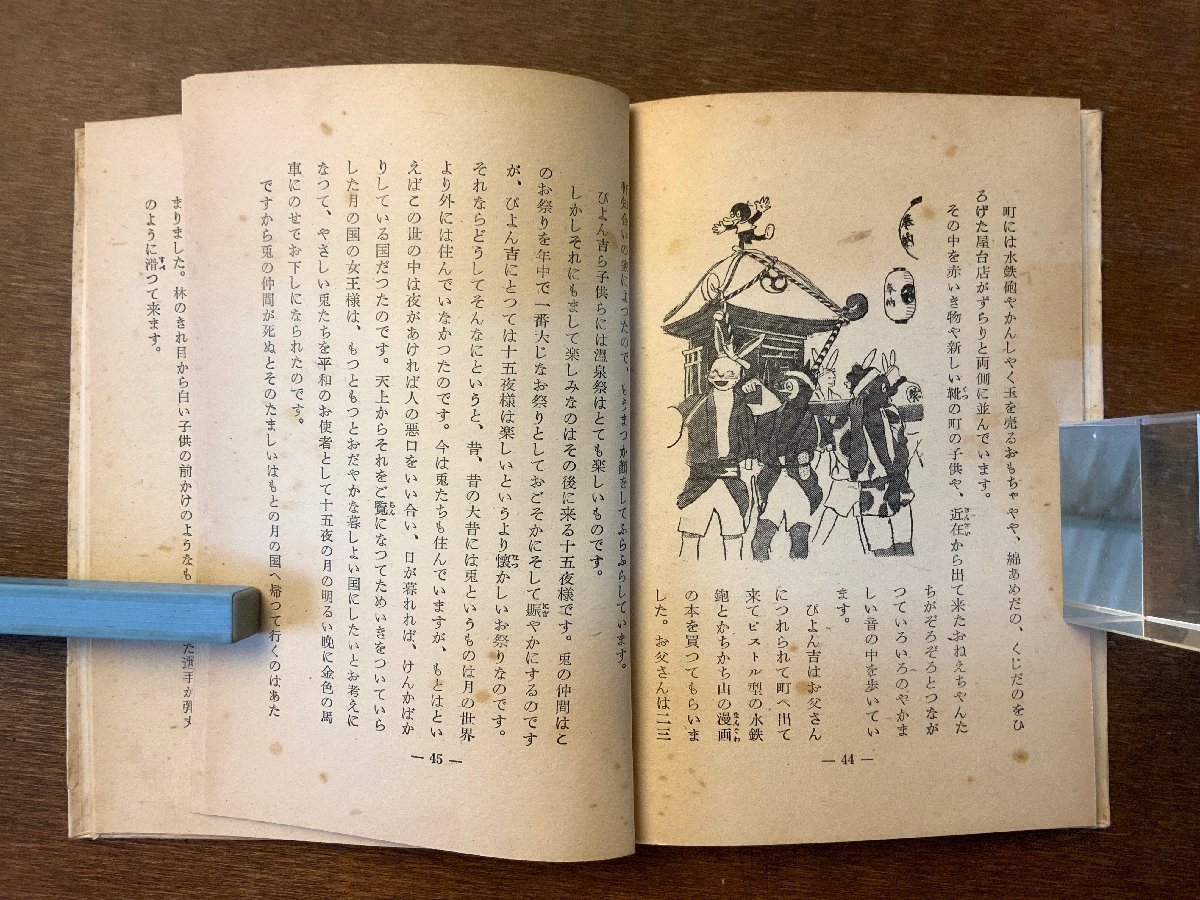 町には水鉄砲やかんしやく玉を売るおもちゃやや、綿あめだの、くじだのをひ
ろげた屋台店がずらりと両側に並んでいます。
その中を赤いき物や新しい靴の町の子供や、近在から出て来たおねえちゃんた
ちがぞろぞろとつなが
つていろいろのやかま
しい音の中を歩いてい
ます。
ぴよん吉はお父さん
につれられて町へ出て
来てピストル型の水鉄
砲とかちかち山の漫画
の本を買つてもらいま
した。お父さんは二三
奉納
奉納
祭
— 44 —
によつたので、もうまつか顔をしてふらふらしています。
ぴよん吉ら子供らには温泉祭はとても楽しいものです。
しかしそれにもまして楽しみなのはその後に来る十五夜様です。兎の仲間はこ
のお祭りを年中で一番大じなお祭りとしておごそかにそして賑やかにするのです
が、ぴよん吉にとつては十五夜様は楽しいというより懐かしいお祭りなのです。
それならどうしてそんなにというと、昔、昔の大昔には兎というものは月の世界
より外には住んでいなかつたのです。今は兎たちも住んでいますが、もとはとい
えばこの世の中は夜があければ人の悪口をいい合い、日が暮れれば、けんかばか
りしている国だつたのです。天上からそれをご覧になつてためいきをついていら
した月の国の女王様は、もつともつとおだやかな暮しよい国にしたいとお考えに
なつて、やさしい兎たちを平和のお使者として十五夜の月の明るい晩に金色の馬
車にのせてお下しになられたのです。
ですから兎の仲間が死ぬとそのたましいはもとの月の国へ帰つて行くのはあた
— 45 —
まりました。林のきれ目から白い子供の前かけのようなも
のように滑つて来ます。